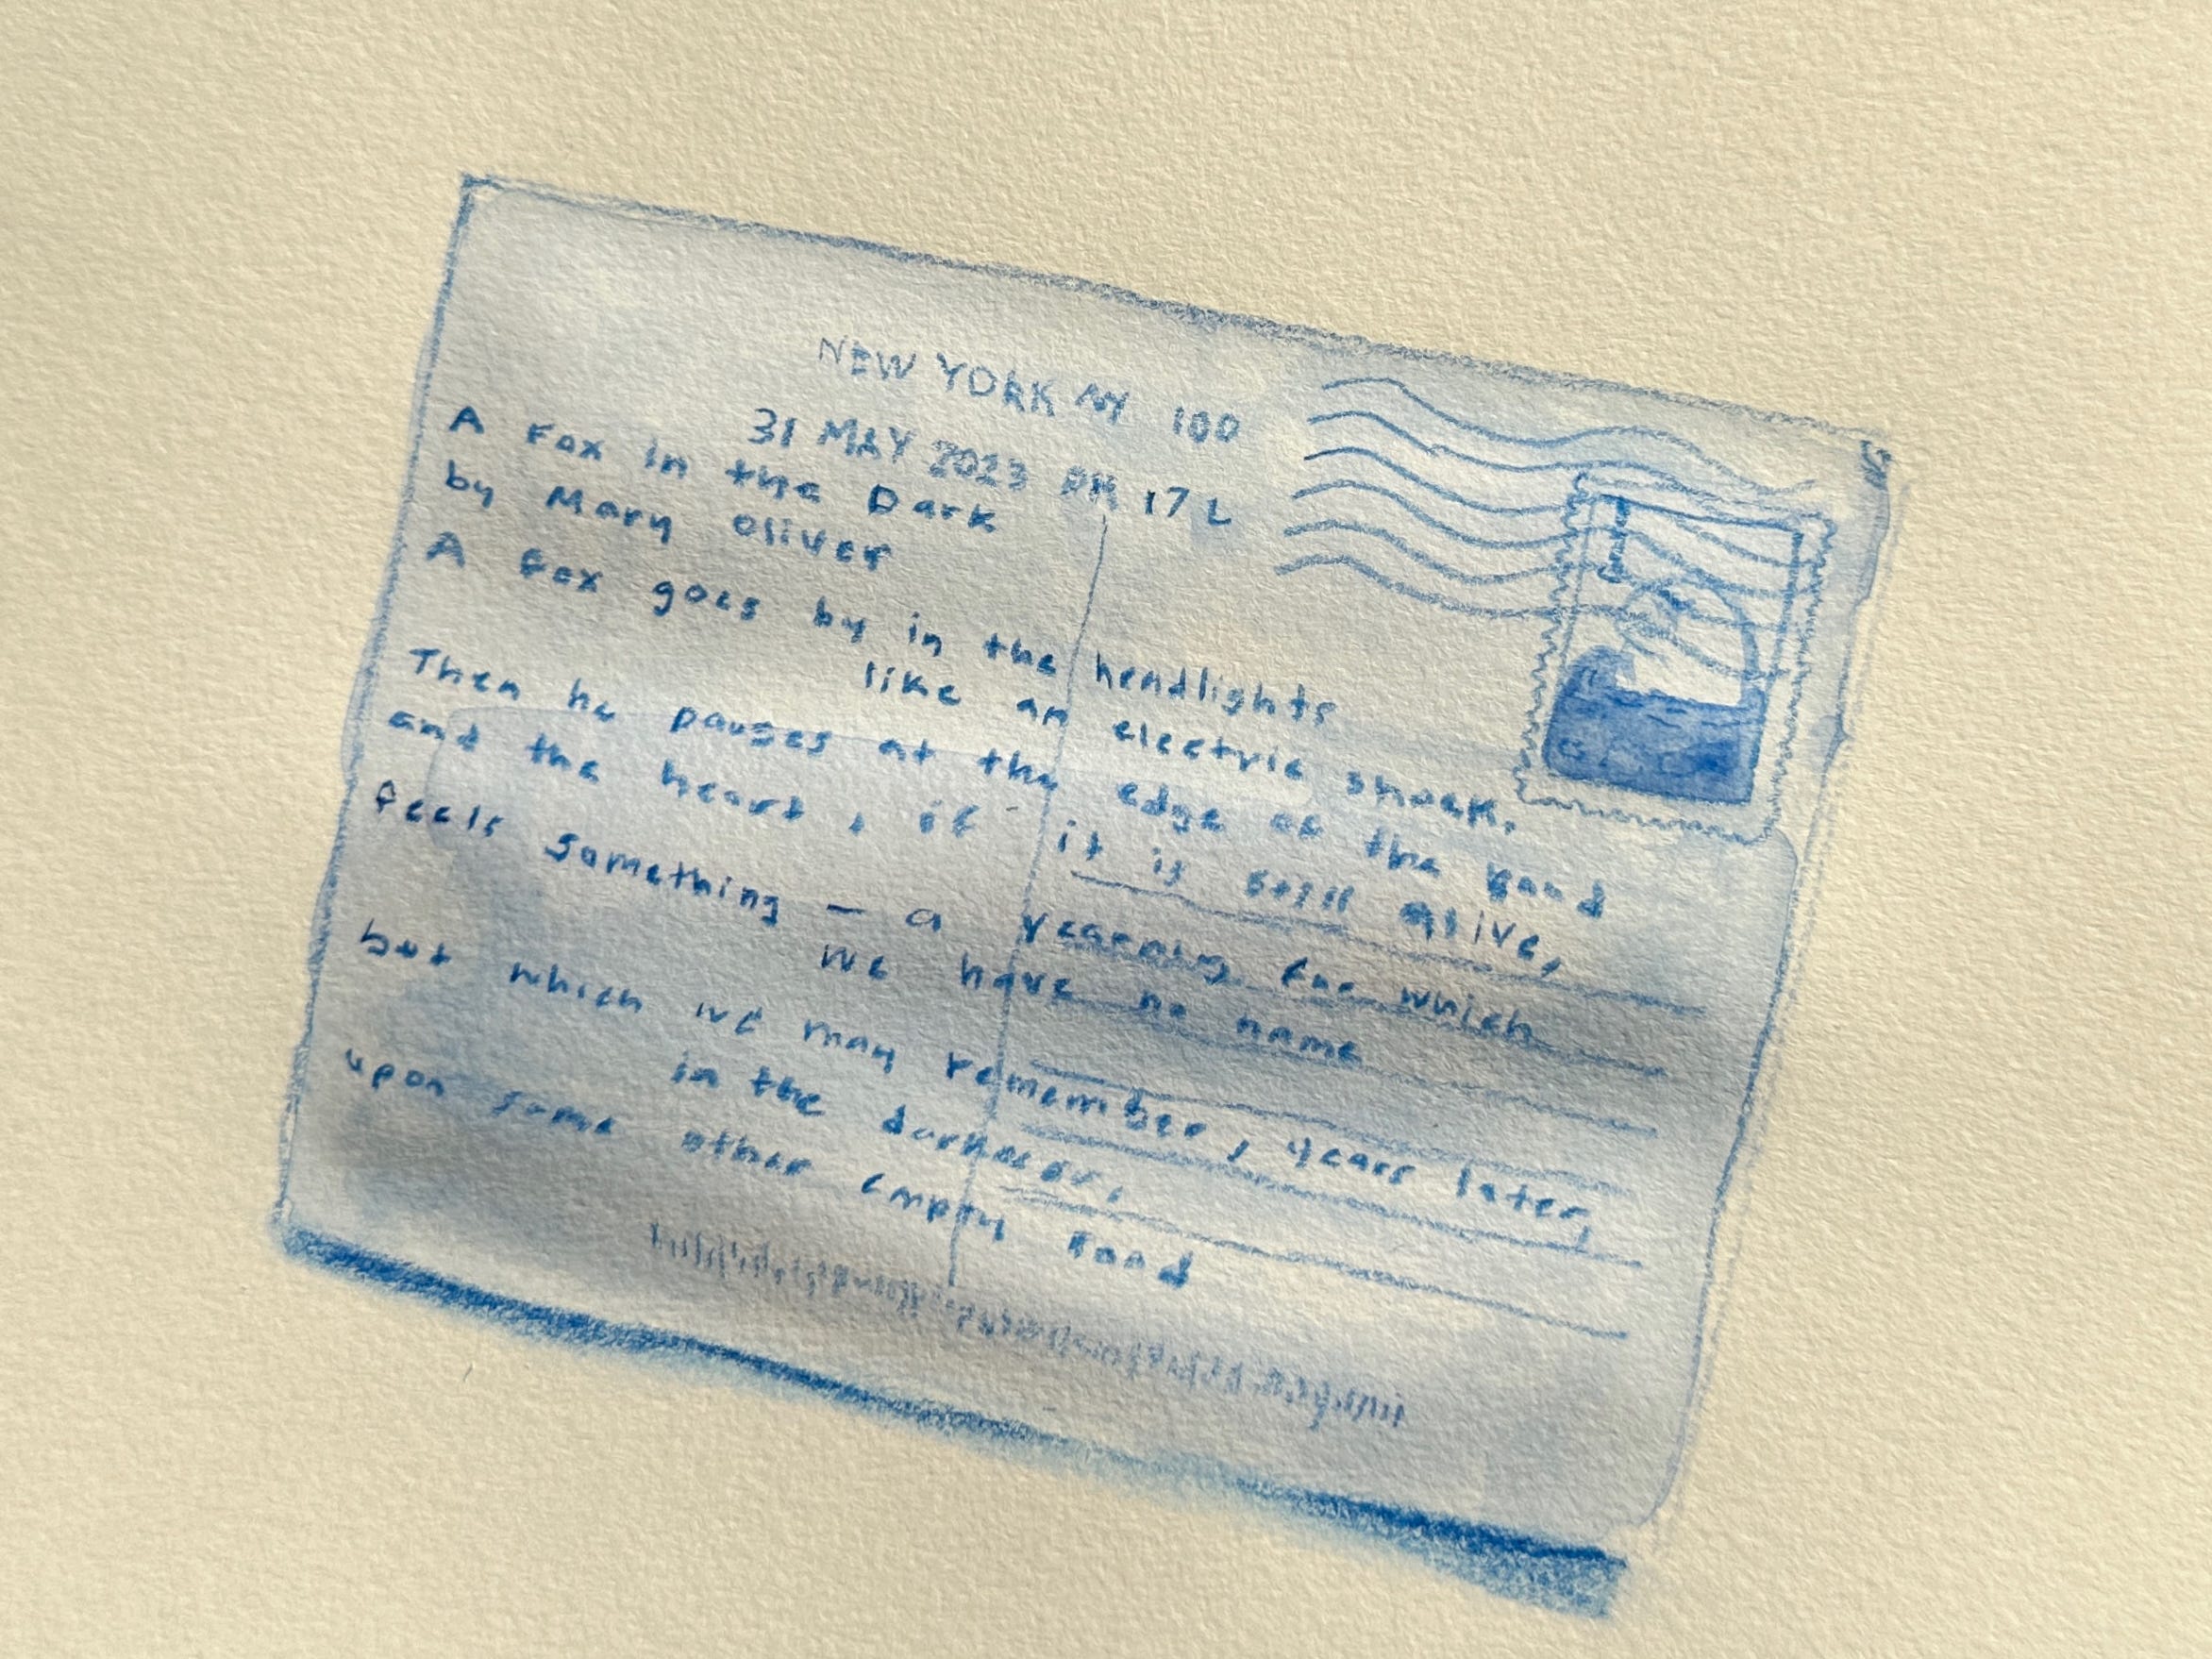 NEW YORK NY 100
31 MAY 2023 PM 17 L
A Fox in the Dark
by Mary Oliver
A fox goes by in the headlights
like an electric shock.
Then he pauses at the edge of the road
and the heart, if it is still alive,
feels something — a yearning for which
we have no name
but which we may remember, years later,
in the darkness,
upon some other empty road